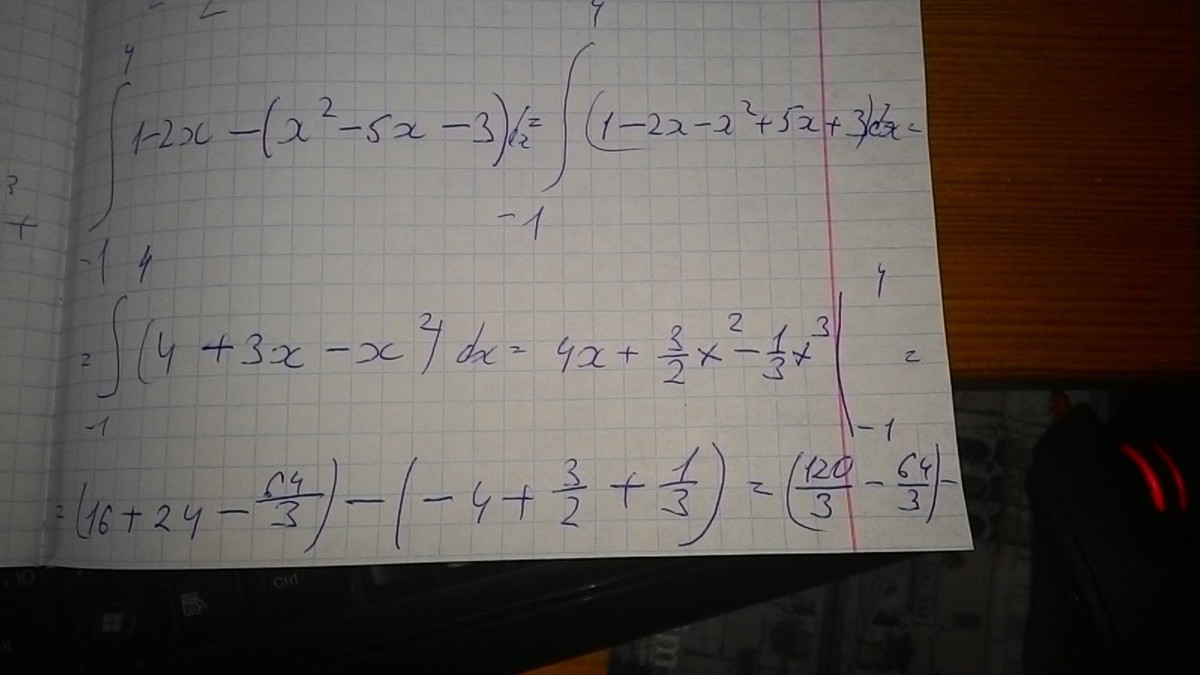 3
+
4 4
∫ 1-2x - (x² - 5x - 3)dx = ∫ (1 - 2x - x² + 5x + 3)dx =
-1 -1
4 4
= ∫ (4 + 3x - x²) dx = 4x + 3/2 x² - 1/3 x³ | =
-1 -1
= (16 + 24 - 64/3) - (-4 + 3/2 + 1/3) = (120/3 - 64/3) -
Ctrl